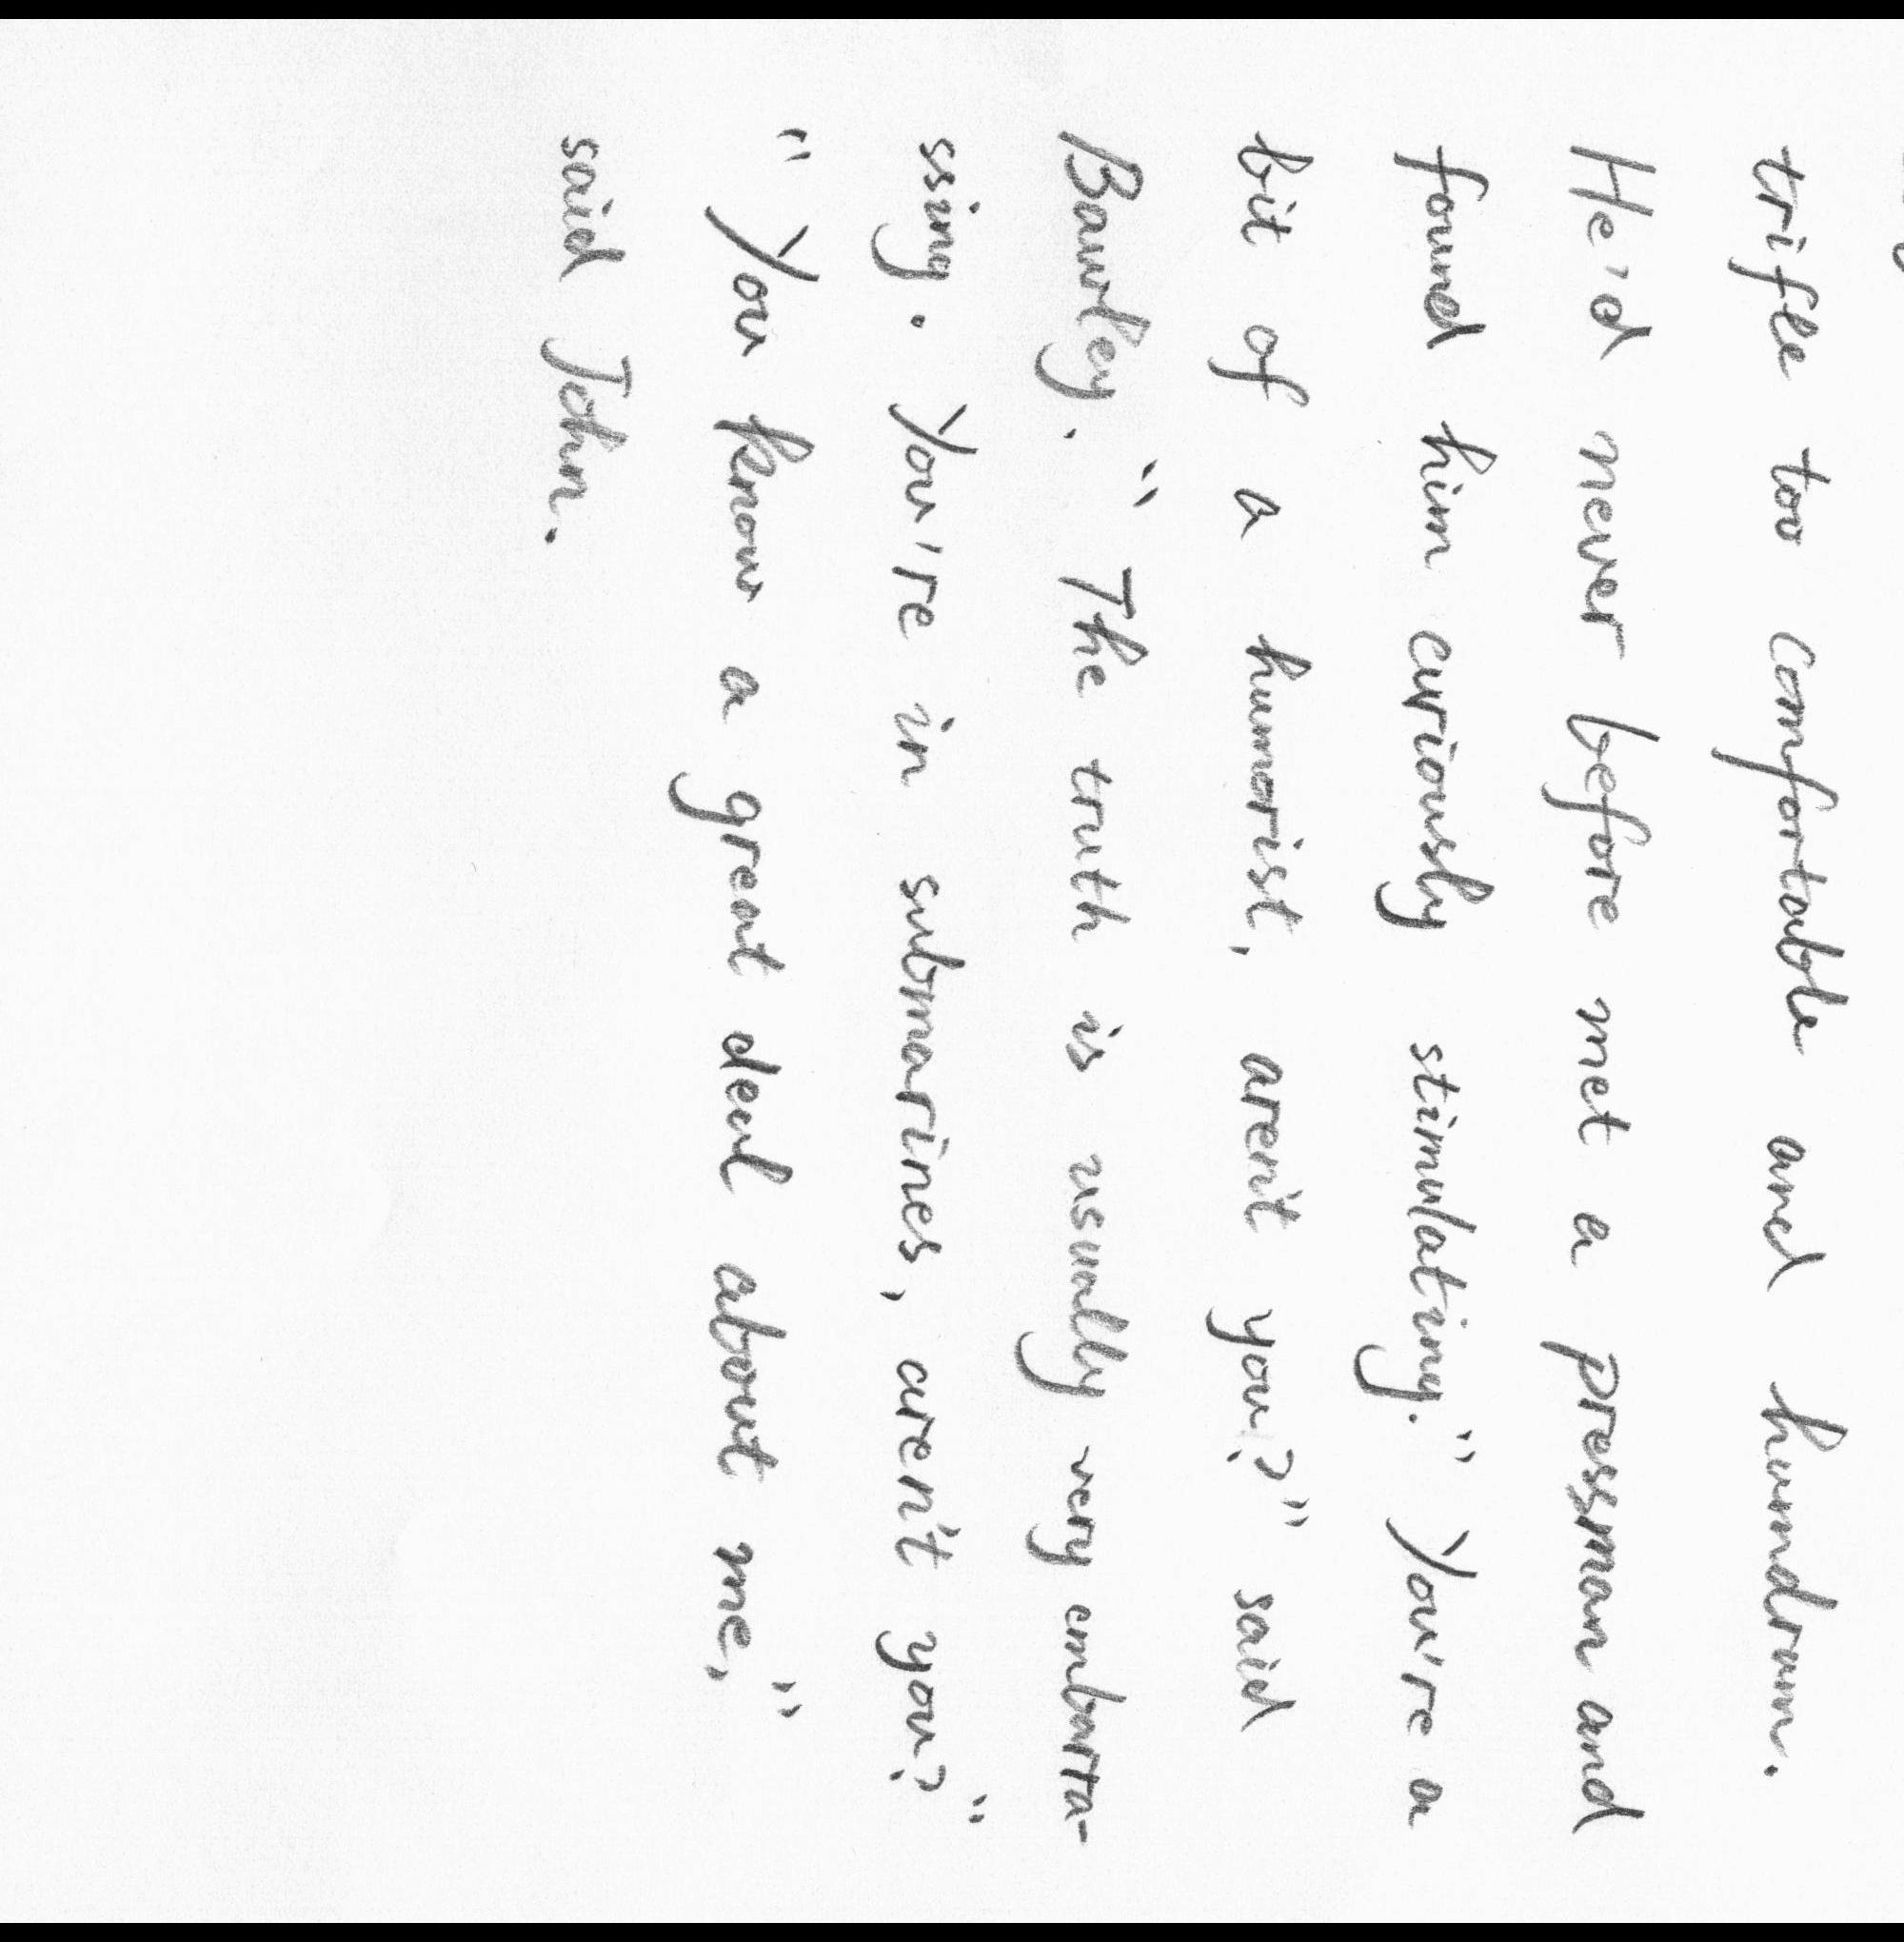 trifle too comfortable and humdrum.
He'd never before met a pressman and
found him curiously stimulating." You're a
bit of a humorist, aren't you?" said
Bawrley. "The truth is usually very embarra-
ssing. You're in submarines, aren't you?"
"You know a great deal about me,"
said John.